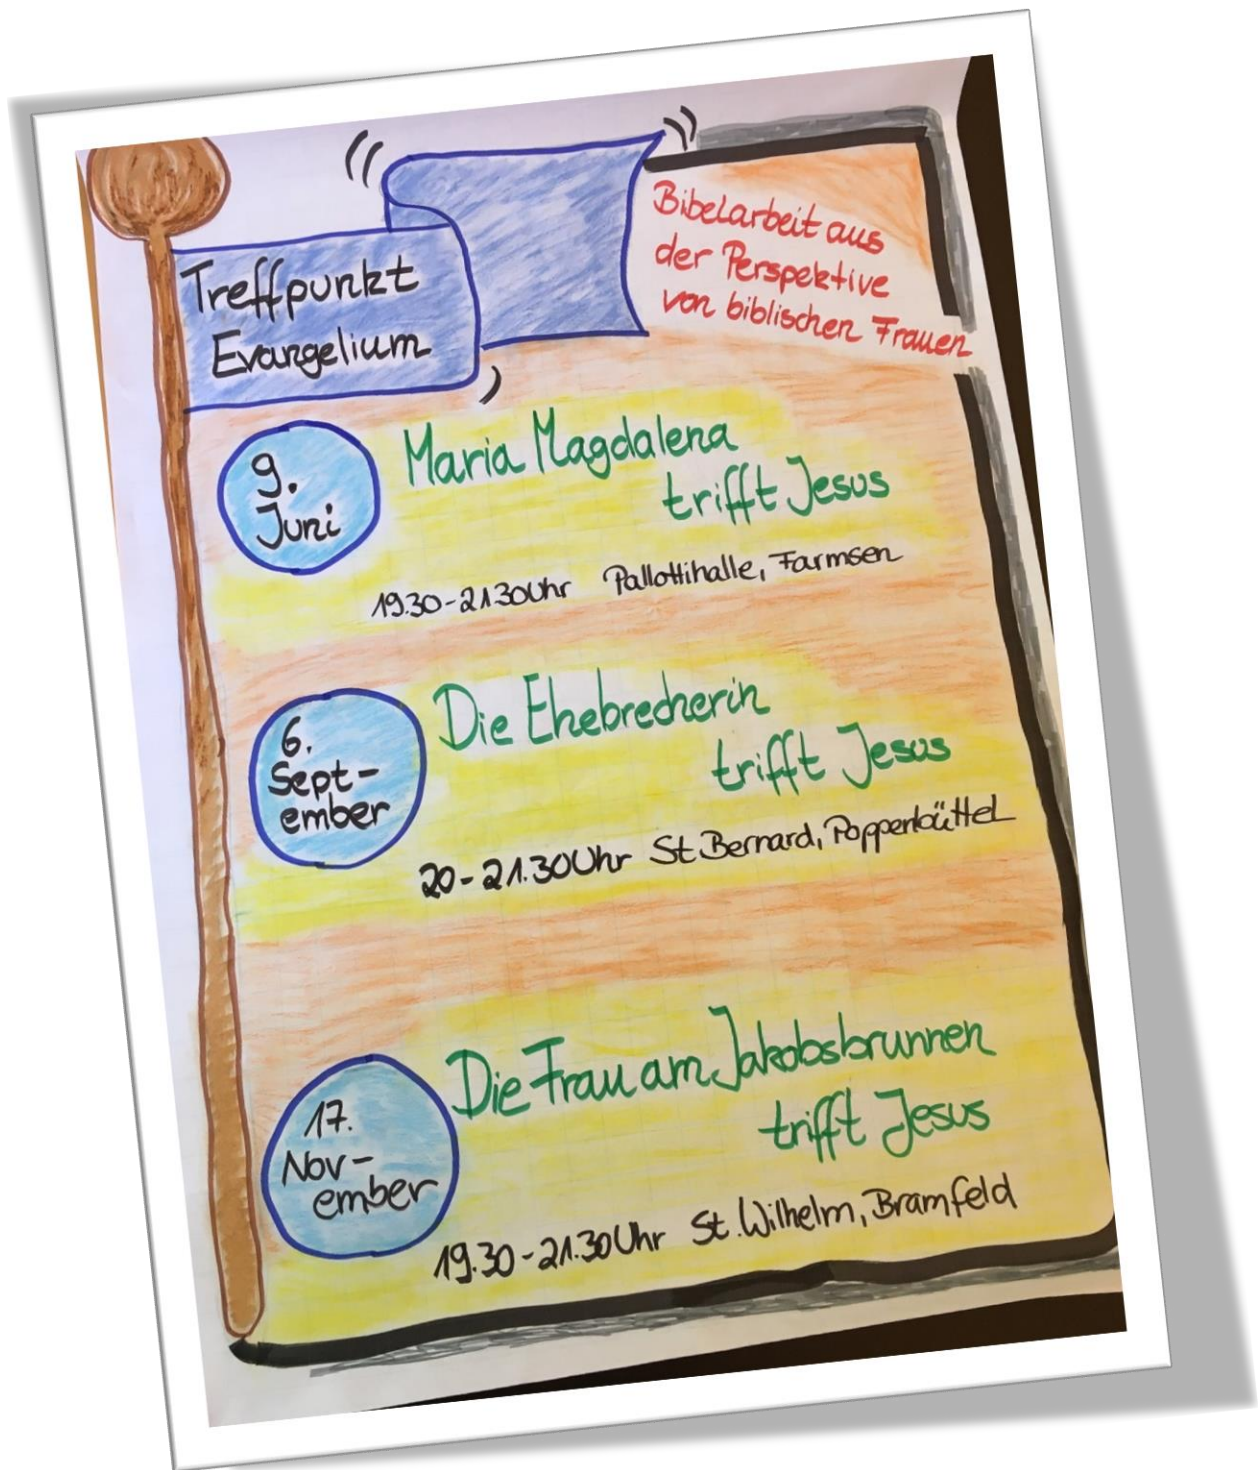 Treffpunkt
Evangelium
Bibelarbeit aus
der Perspektive
von biblischen Frauen
9.
Juni
Maria Magdalena
trifft Jesus
19.30-21.30Uhr Pallottihalle, Farmsen
6.
Sept-
ember
Die Ehebrecherin
trifft Jesus
20-21.30Uhr St Bernard, Poppenbüttel
17.
Nov-
ember
Die Frau am Jakobsbrunnen
trifft Jesus
19.30-21.30Uhr St. Wilhelm, Bramfeld